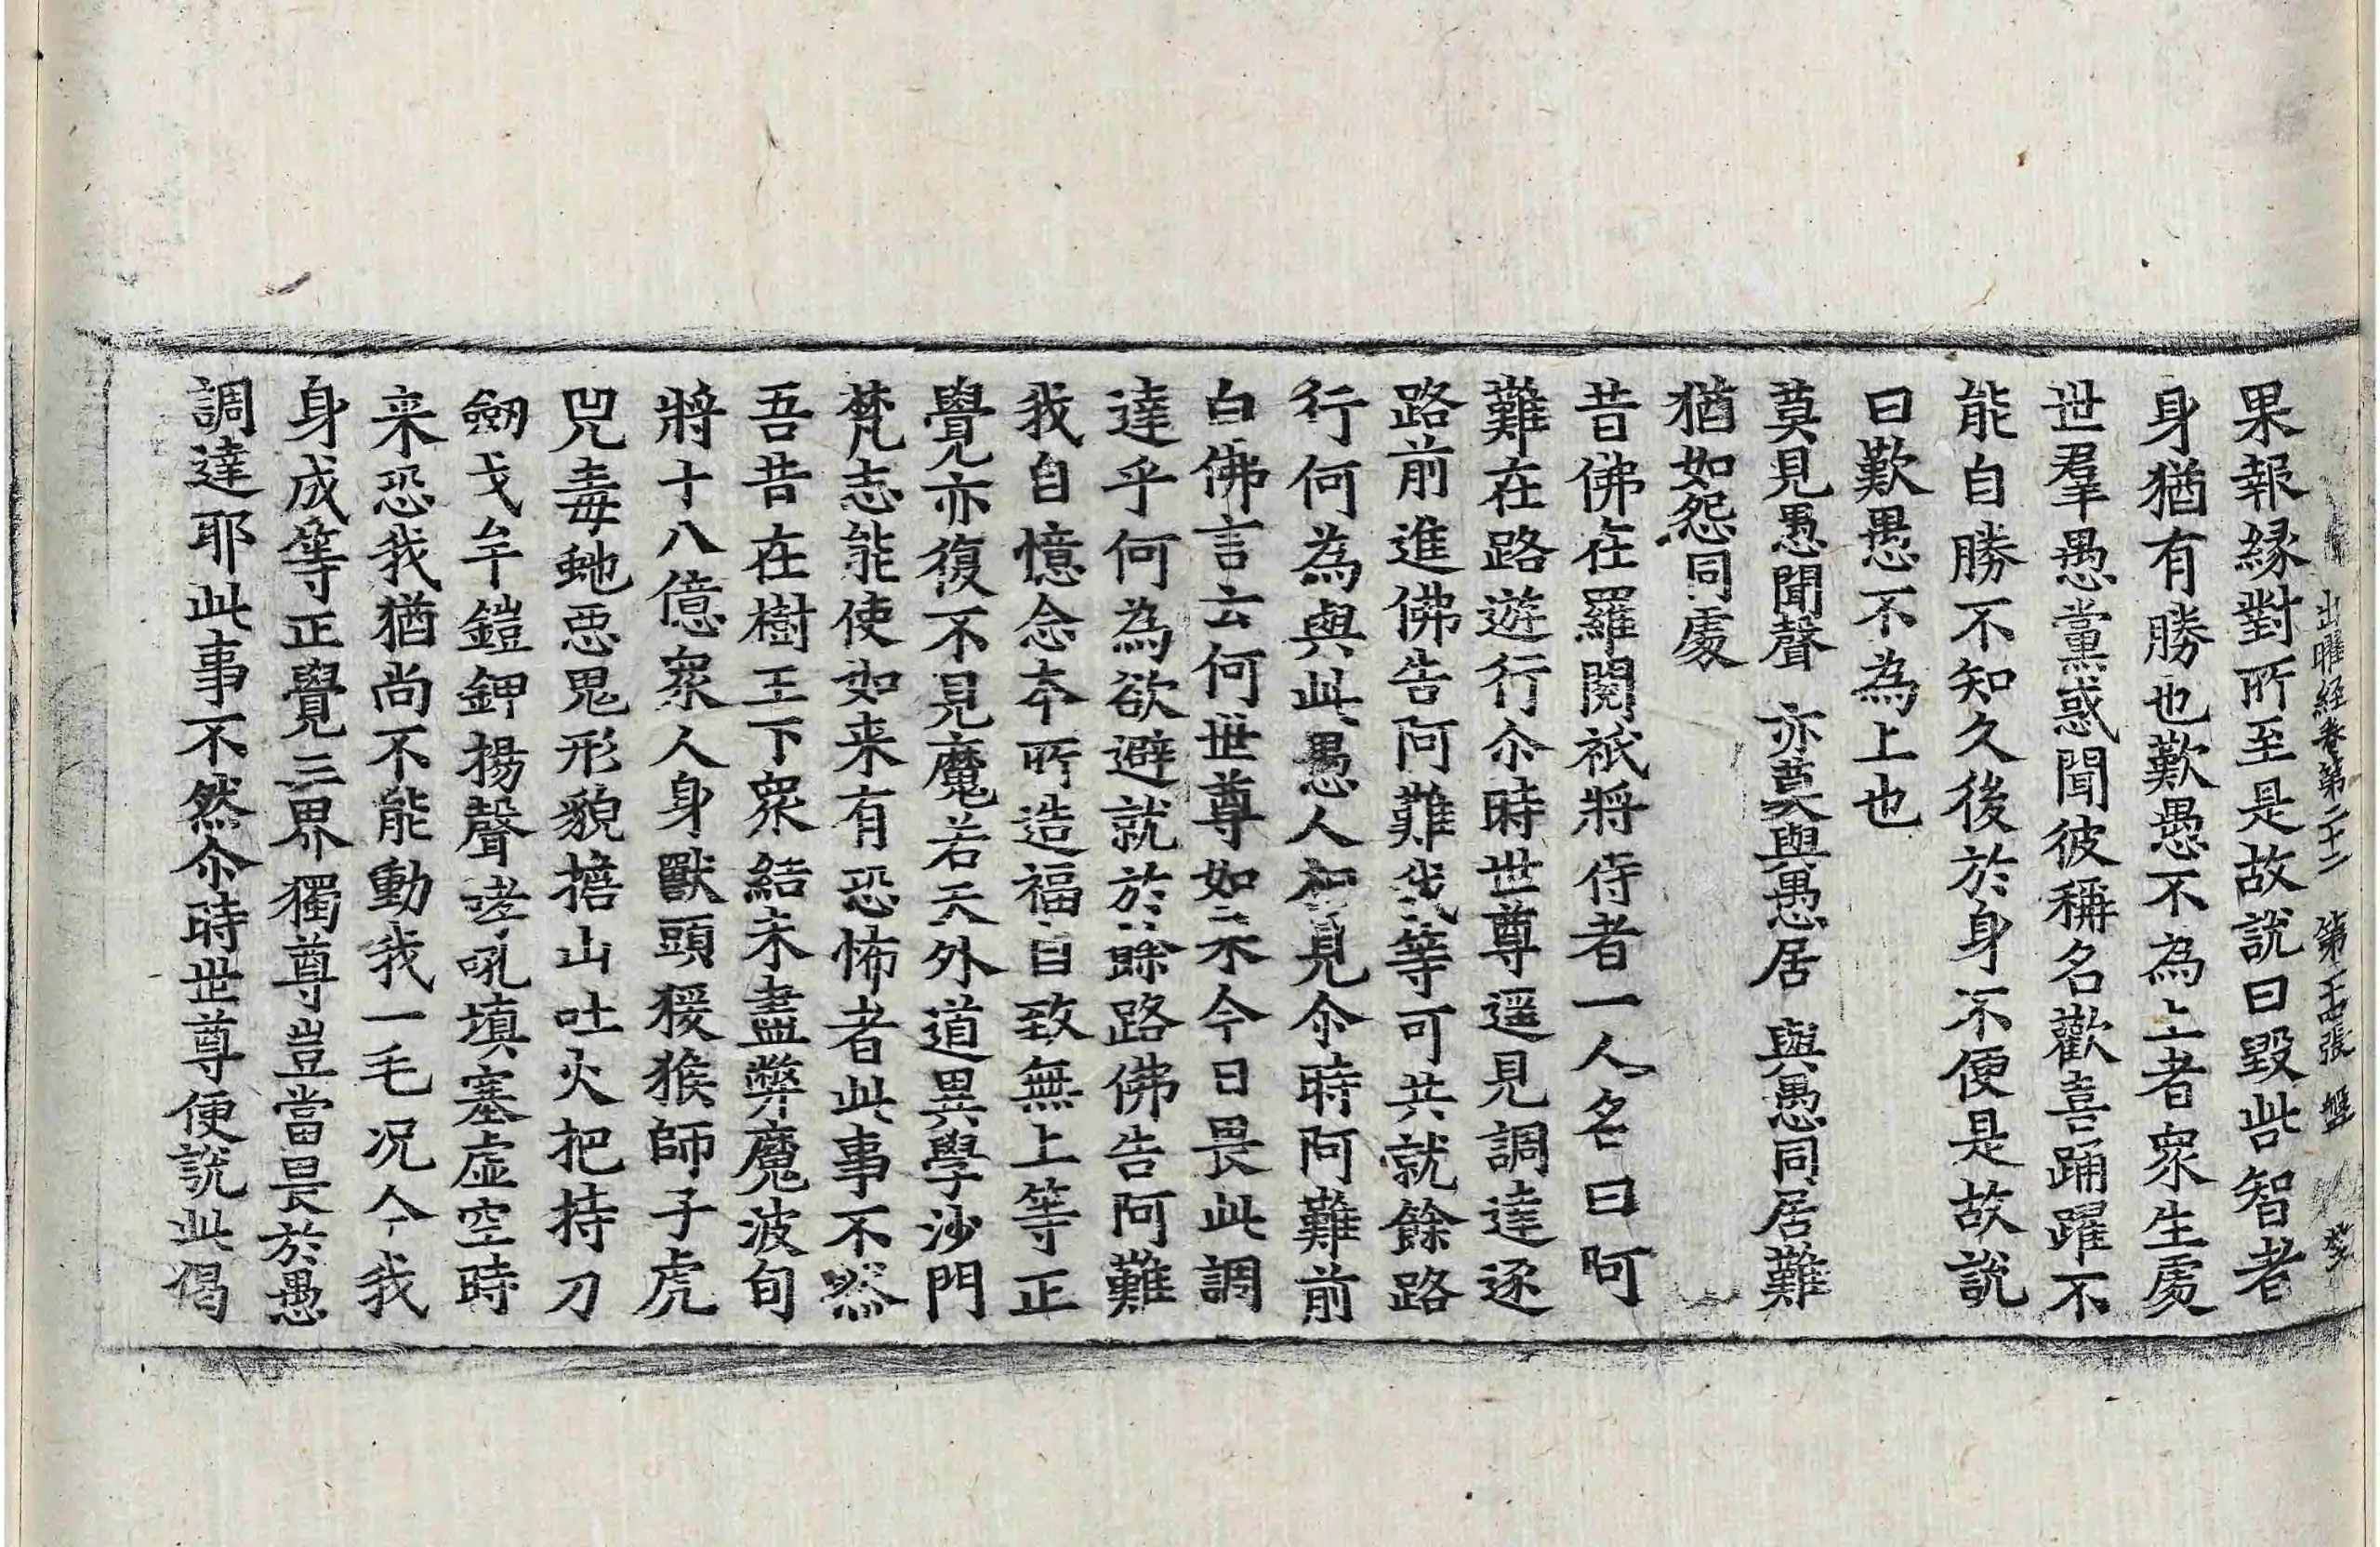 出曜経卷第二十二 第二十四張 盤
果報緣對所至是故說曰毀呰智者
身猶有勝也歎愚不為上者衆生處
世羣愚黨惑聞彼稱名歡喜踊躍不
能自勝不知久後於身不便是故說
曰歎愚不為上也
莫見愚聞聲 亦莫與愚居 與愚同居難
猶如怨同處
昔佛在羅閱祇將侍者一人名曰阿
難在路遊行尒時世尊遥見調達逐
路前進佛告阿難我等可共就餘路
行何為與此愚人相見尒時阿難前
白佛言云何世尊如来今日畏此調
達乎何為欲避就於餘路佛告阿難
我自憶念本所造福自致無上等正
覺亦復不見魔若天外道異學沙門
梵志能使如来有恐怖者此事不然
吾昔在樹王下衆結未盡弊魔波旬
將十八億衆人身獸頭猨猴師子虎
兕毒虵惡鬼形貌擔山吐火把持刀
劒戈牟鎧鉀揚聲哮吼填塞虛空時
来恐我猶尚不能動我一毛況今我
身成等正覺三界獨尊豈當畏於愚
調達耶此事不然尒時世尊便說此偈